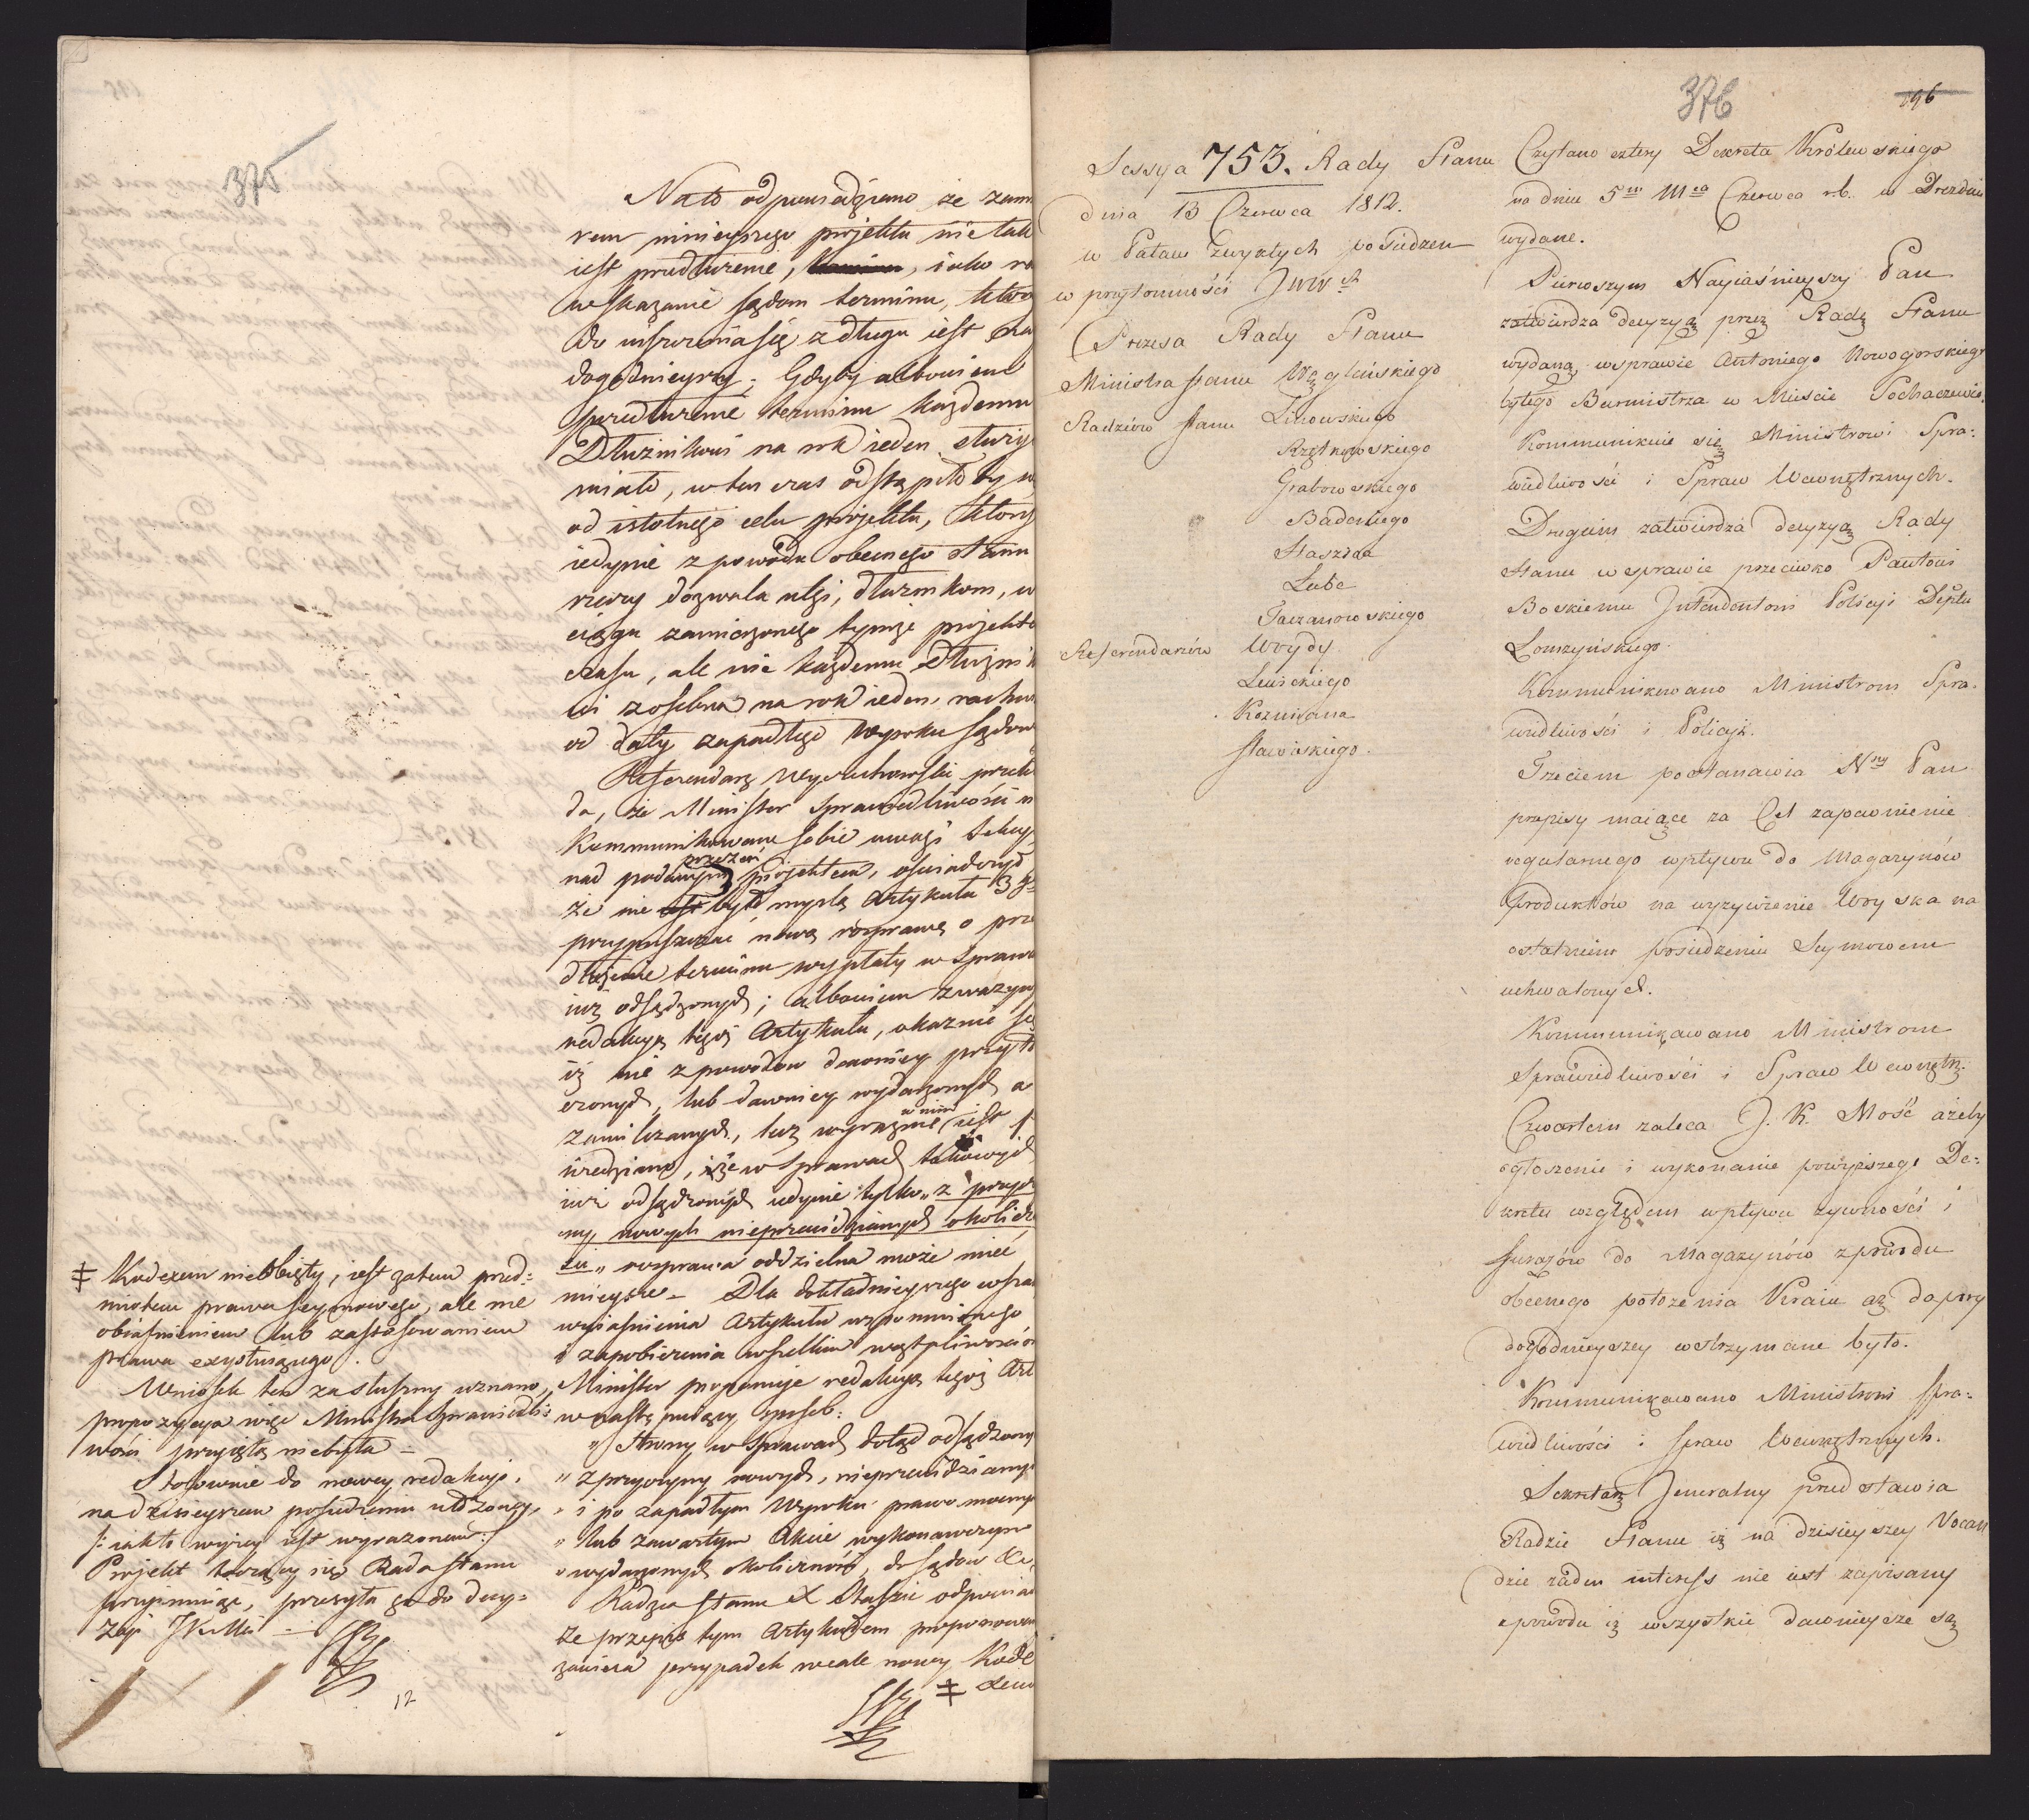 375
Na to odpowiedziano że zam
rem ninieyszego projektu nie tak
iest przedłużenie, iako
wskazanie sądom terminu, któ
do uiszczenia się z długu iest
dogodnieyszy. Gdyby albowiem
przedłużenie terminu każdemu
Dłużnikowi na rok ieden służyć
miało, w ten czas odstąpiło by
od istotnego celu projektu, który
iedynie z powodu obecnego stanu
rzeczy dozwala ulgi, dłużnikom, w
ciągu zamierzonego tymże projekt
czasu, ale nie każdemu Dłużni
wi z osobna na rok ieden, rachu
od daty zapadłego Wyroku sądow
Referendarz Wyczechowski przekł
da, że Minister Sprawiedliwości
kommunikowane sobie uwagi
nad podanym przezeń projektem, oświadczył
że nie było myslą Artykułu 3go
przypuszczać nową rozprawę o prze
dłużenie terminu wypłaty w spraw
iuż osądzonych; albowiem zważyw
redakcyą tegoż Artykułu, okazuie się
iż nie z powodów dawniey przyto
czonych, lub dawniey wydarzonych a
zamilczanych, lecz wyraźnie w nim iest
wiedziano, iże w sprawach takowych
iuż odsądzonych iedynie tylko „z przycz
ny nowych nieprzewidzianych okolicz
ści„ rozprawa oddzielna może mieć
mieysce – Dla dokładnieyszego
wyiaśnienia Artykułu wspomnionego
i zapobieżenia wszelkim wątpliwościo
Minister proponuje redakcyą tegoż Art
w następuiący sposób:
„ Strony w sprawach dotąd odsądzony
„ z przyczyny nowych, nieprzewidziany
„ i po zapadłym Wyroku prawomocny
„ lub zawartym Akcie wykonawczym
„ wydarzonych okoliczności, do sądów
Radca stanu X Staszic odpowia
że przepis tym Artykułem proponowan
zawiera przypadek wcale nowy Kode
‡ xem
‡ Kodexem nieobięty, iest zatem przed=
miotem prawa seymowego, ale nie
obiaśnieniem lub zastosowaniem
prawa exystuiącego.
Wniosek ten za słuszny uznano,
propozycya więc Ministra Sprawiedli=
wości przyięta niebyła –
Stosownie do nowey redakcyi,
na dzisieyszem posiedzeniu ułożoney,
/: iak to wyżey iest wyrażonem :/
Projekt tworzący się Rada stanu
przyimuiąc, przesyła go do decy=
zyi JKMci –
12
376
196
Sessya 753. Rady Stanu
dnia 13 Czerwca 1812.
w Pałacu zwykłych posiedzen
w przytomności JWW.
Prezesa Rady Stanu
Ministra stanu Węgleńskiego
Radzców stanu Linowskiego
Rzętkowskiego
Grabowskiego
Badeniego
Staszica
Lube
Taczanowskiego
Referendarzów Woydy
Lewickiego
Kozmiana
stawiskiego.
Czytano cztery Dekreta Królewskiego
na dniu 5m Mca Czerwca r.b. w Dreźdnie
wydane.
Pierwszym Nayiaśnieyszy Pan
zatwierdza decyzyą przez Radę Stanu
wydaną w sprawie Antoniego Nowogorskiego
byłego Burmistrza w Mieście Sochaczewie.
Kommunikuie się Ministrowi Spra:
wiedliwości i Spraw Wewnętrznych.
Drugim zatwierdza decyzyą Rady
Stanu w sprawie przeciwko Pawłowi
Boskiemu Intendentowi Policyi Deptu
Łomżyńskiego.
Kommunikowano Ministrom Spra-
wiedliwości i Policyi.
Trzeciem postanawia Nny Pan
przepisy maiące za Cel zapewnienie
regularnego wpływu do Magazynów
Produktów na wyżywienie Woyska na
ostatniem posiedzeniu Seymowem
uchwalonych.
Kommunikowano Ministrom
Sprawiedliwości i Spraw Wewnętrz.
Czwartem zaleca J. K. Mość ażeby
ogłoszenie i wykonanie powyższego De:
kretu względem wpływu żywności i
furażów do Magazynów z powodu
obecnego położenia Kraiu aż do pory
dogodnieyszey wstrzymane było.
Kommunikowano Ministrowi spra:
wiedliwości i spraw Wewnętrznych.
Sekretarz Jeneralny przedstawia
Radzie Stanu iż na dzisieyszey Vocan
dzie żaden interess nie iest zapisany
z powodu iż wszystkie dawnieysze są